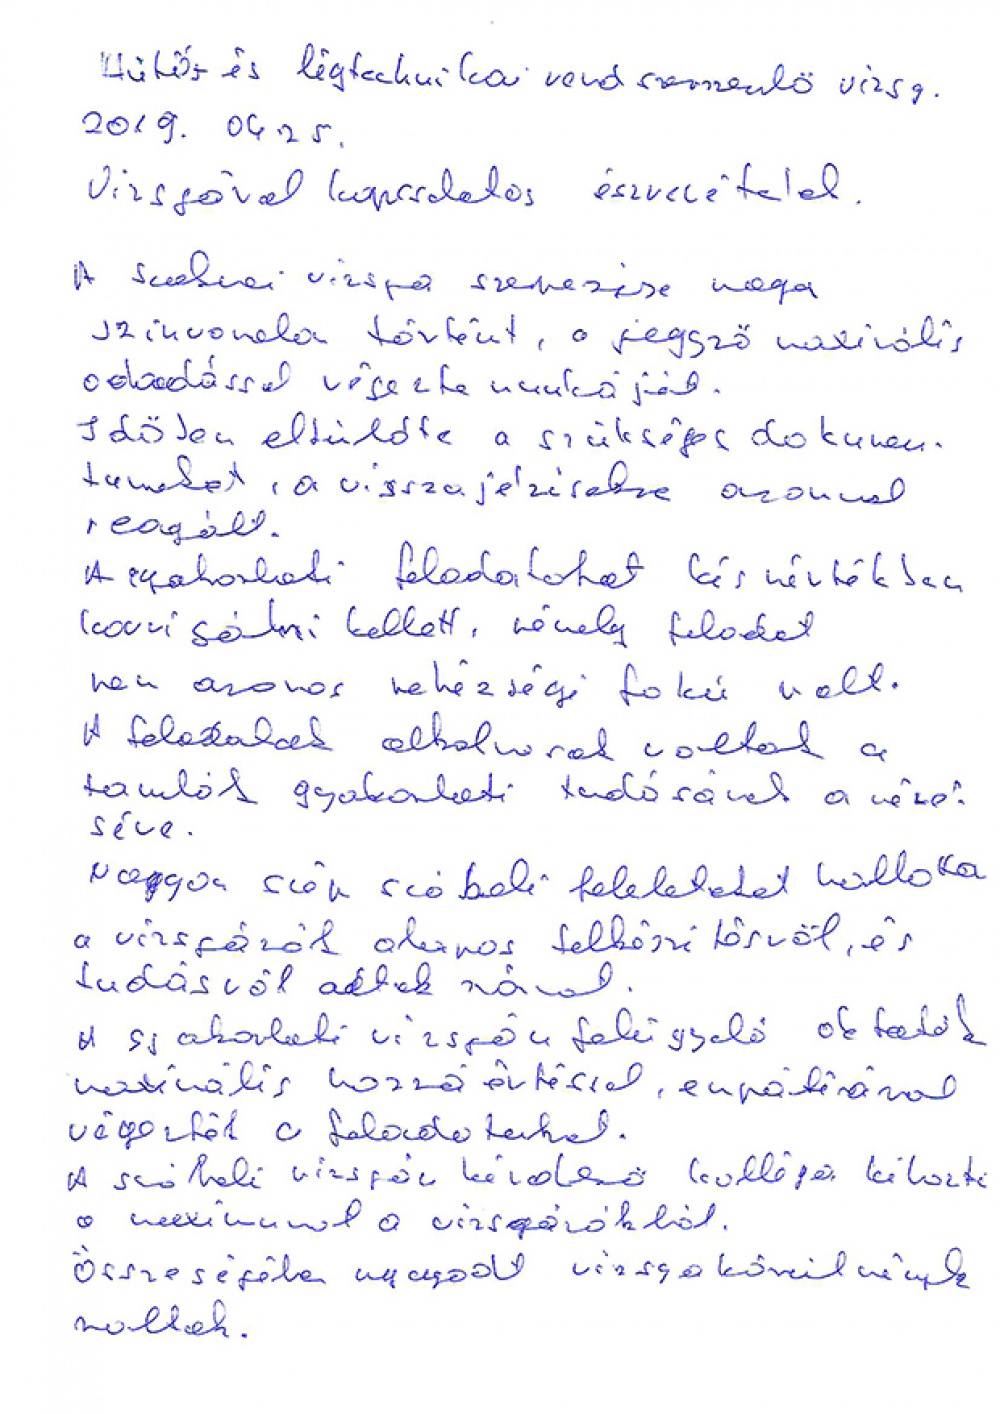 Hűtős és légtechnikai rendszerszerelő vizsg.
2019. 04 25.
Vizsgával kapcsolatos észrevételek.
A szakmai vizsga szervezése maga
színvonalon történt, a jegyző maximális
odaadással végezte munkáját.
Időben elküldte a szükséges dokumen-
tumokat, a visszajelzésekre azonnal
reagált.
A gyakorlati feladatokat kis mértékben
korrigálni kellett, némely feladat
nem azonos nehézségi fokú volt.
A feladatok alkalmasak voltak a
tanulók gyakorlati tudásának a méré-
sére.
Nagyon szép szóbeli feleleteket hallottam
a vizsgázók alapos felkészítésről, és
tudásról adtak számot.
A gyakorlati vizsgán felügyelő oktatók
maximális hozzáértéssel, empátiával
végezték a feladatukat.
A szóbeli vizsgán kérdező kolléga kihozta
a maximumot a vizsgázókból.
Összeségében nyugodt vizsgakörülmények
voltak.